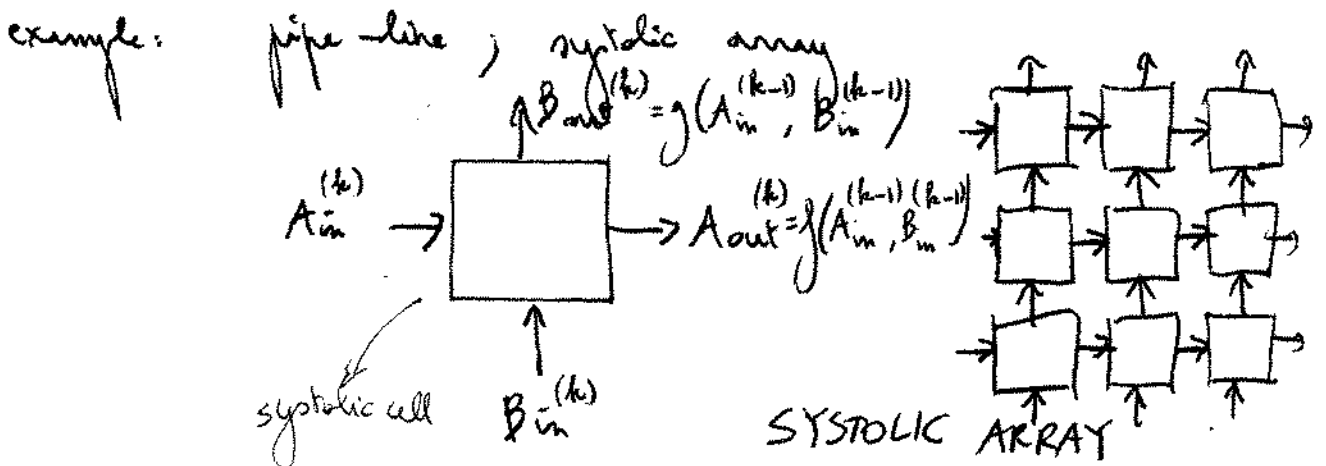 example: pipe-line ; systolic array
B_out^(k) = g(A_in^(k-1), B_in^(k-1))
A_in^(k)
A_out^(k) = f(A_in^(k-1), B_in^(k-1))
systolic cell
B_in^(k)
SYSTOLIC ARRAY